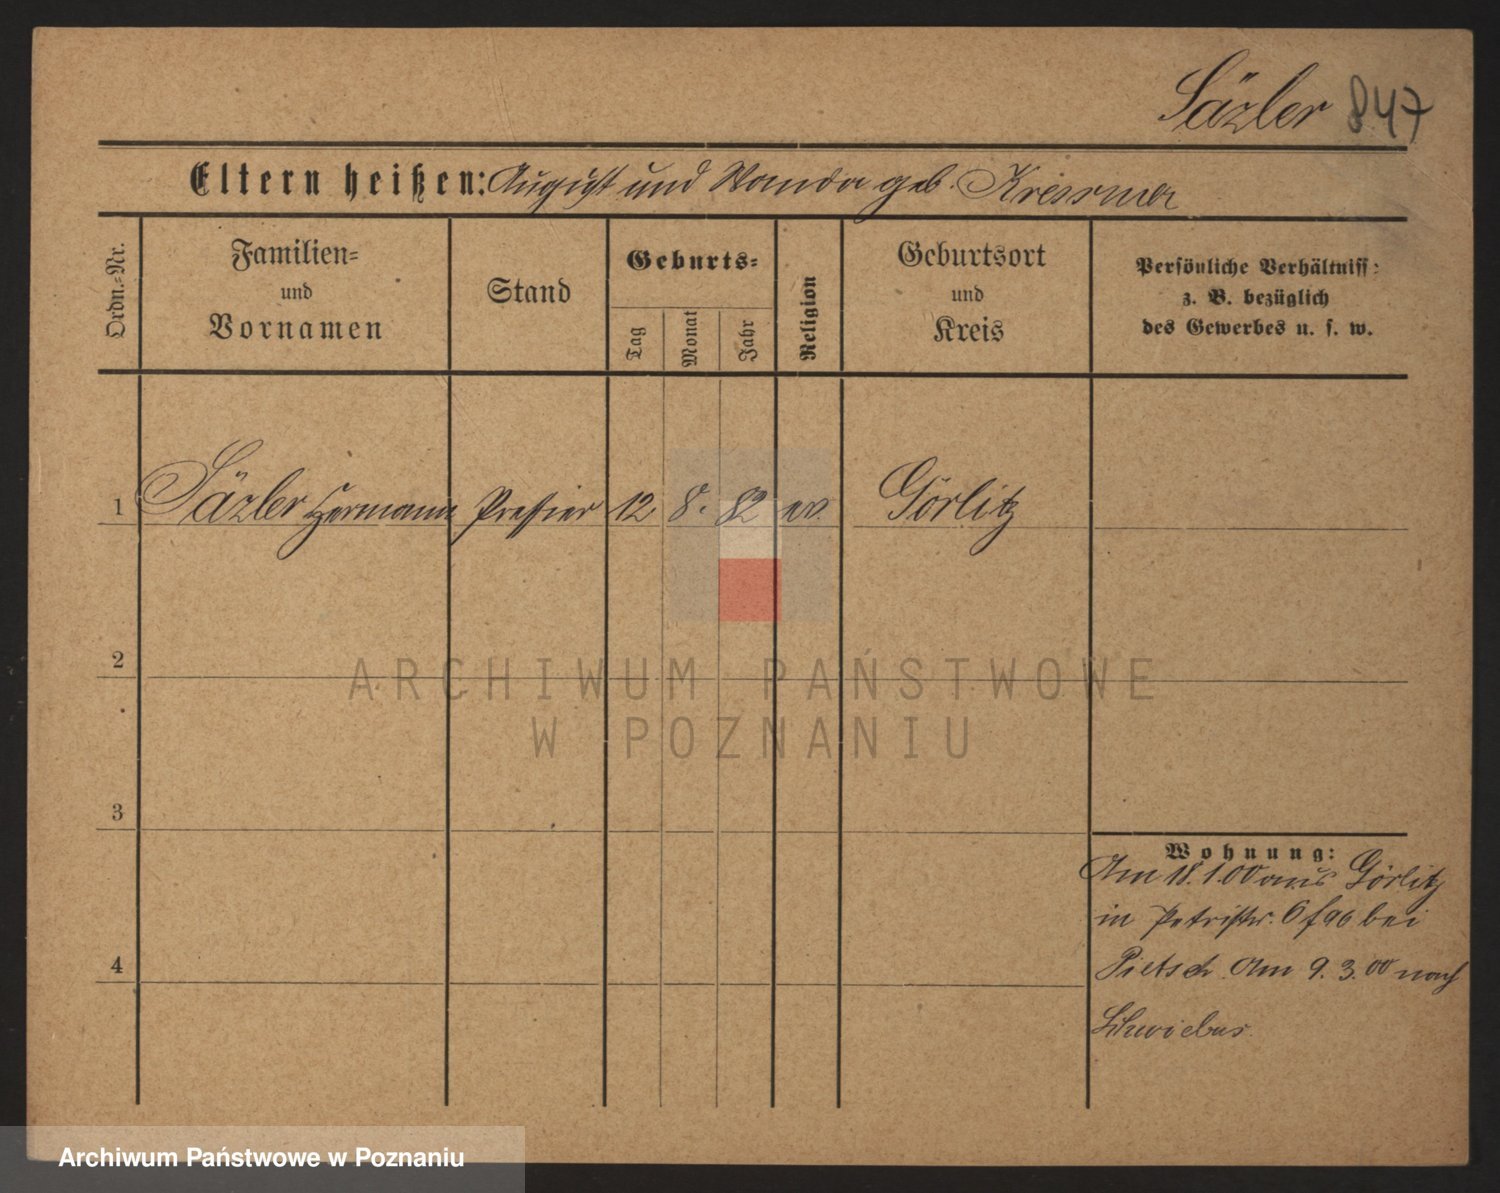 Säzler 847
Eltern heißen: August und Wanda geb. Kressmer
Ordn.=Nr.
Familien=
und
Vornamen
Stand
Geburts=
Tag
Monat
Jahr
Religion
Geburtsort
und
Kreis
Persönliche Verhältniss:
z. B. bezüglich
des Gewerbes u. s. w.
1 Säzler Hermann Pressier 12 8. 82 ev. Görlitz
2
ARCHIWUM PAŃSTWOWE
W POZNANIU
3
Wohnung:
Am 18.1.00 aus Görlitz
in Petristr. 6 bei
4
Pietsch. Am 9.3.00 nach
Schwiebus.
Archiwum Państwowe w Poznaniu